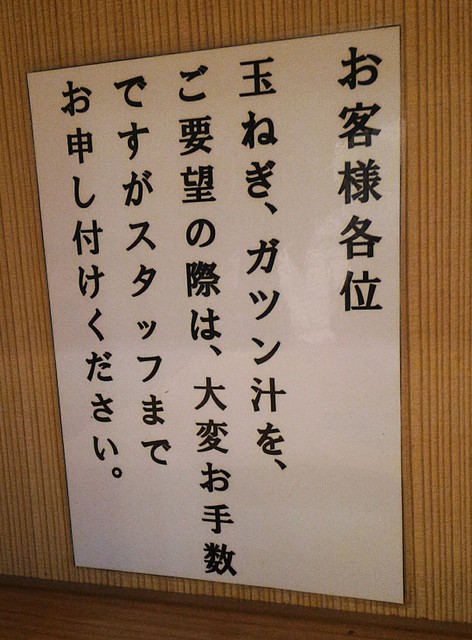 お客様各位
玉ねぎ、ガツン汁を、
ご要望の際は、大変お手数
ですがスタッフまで
お申し付けください。